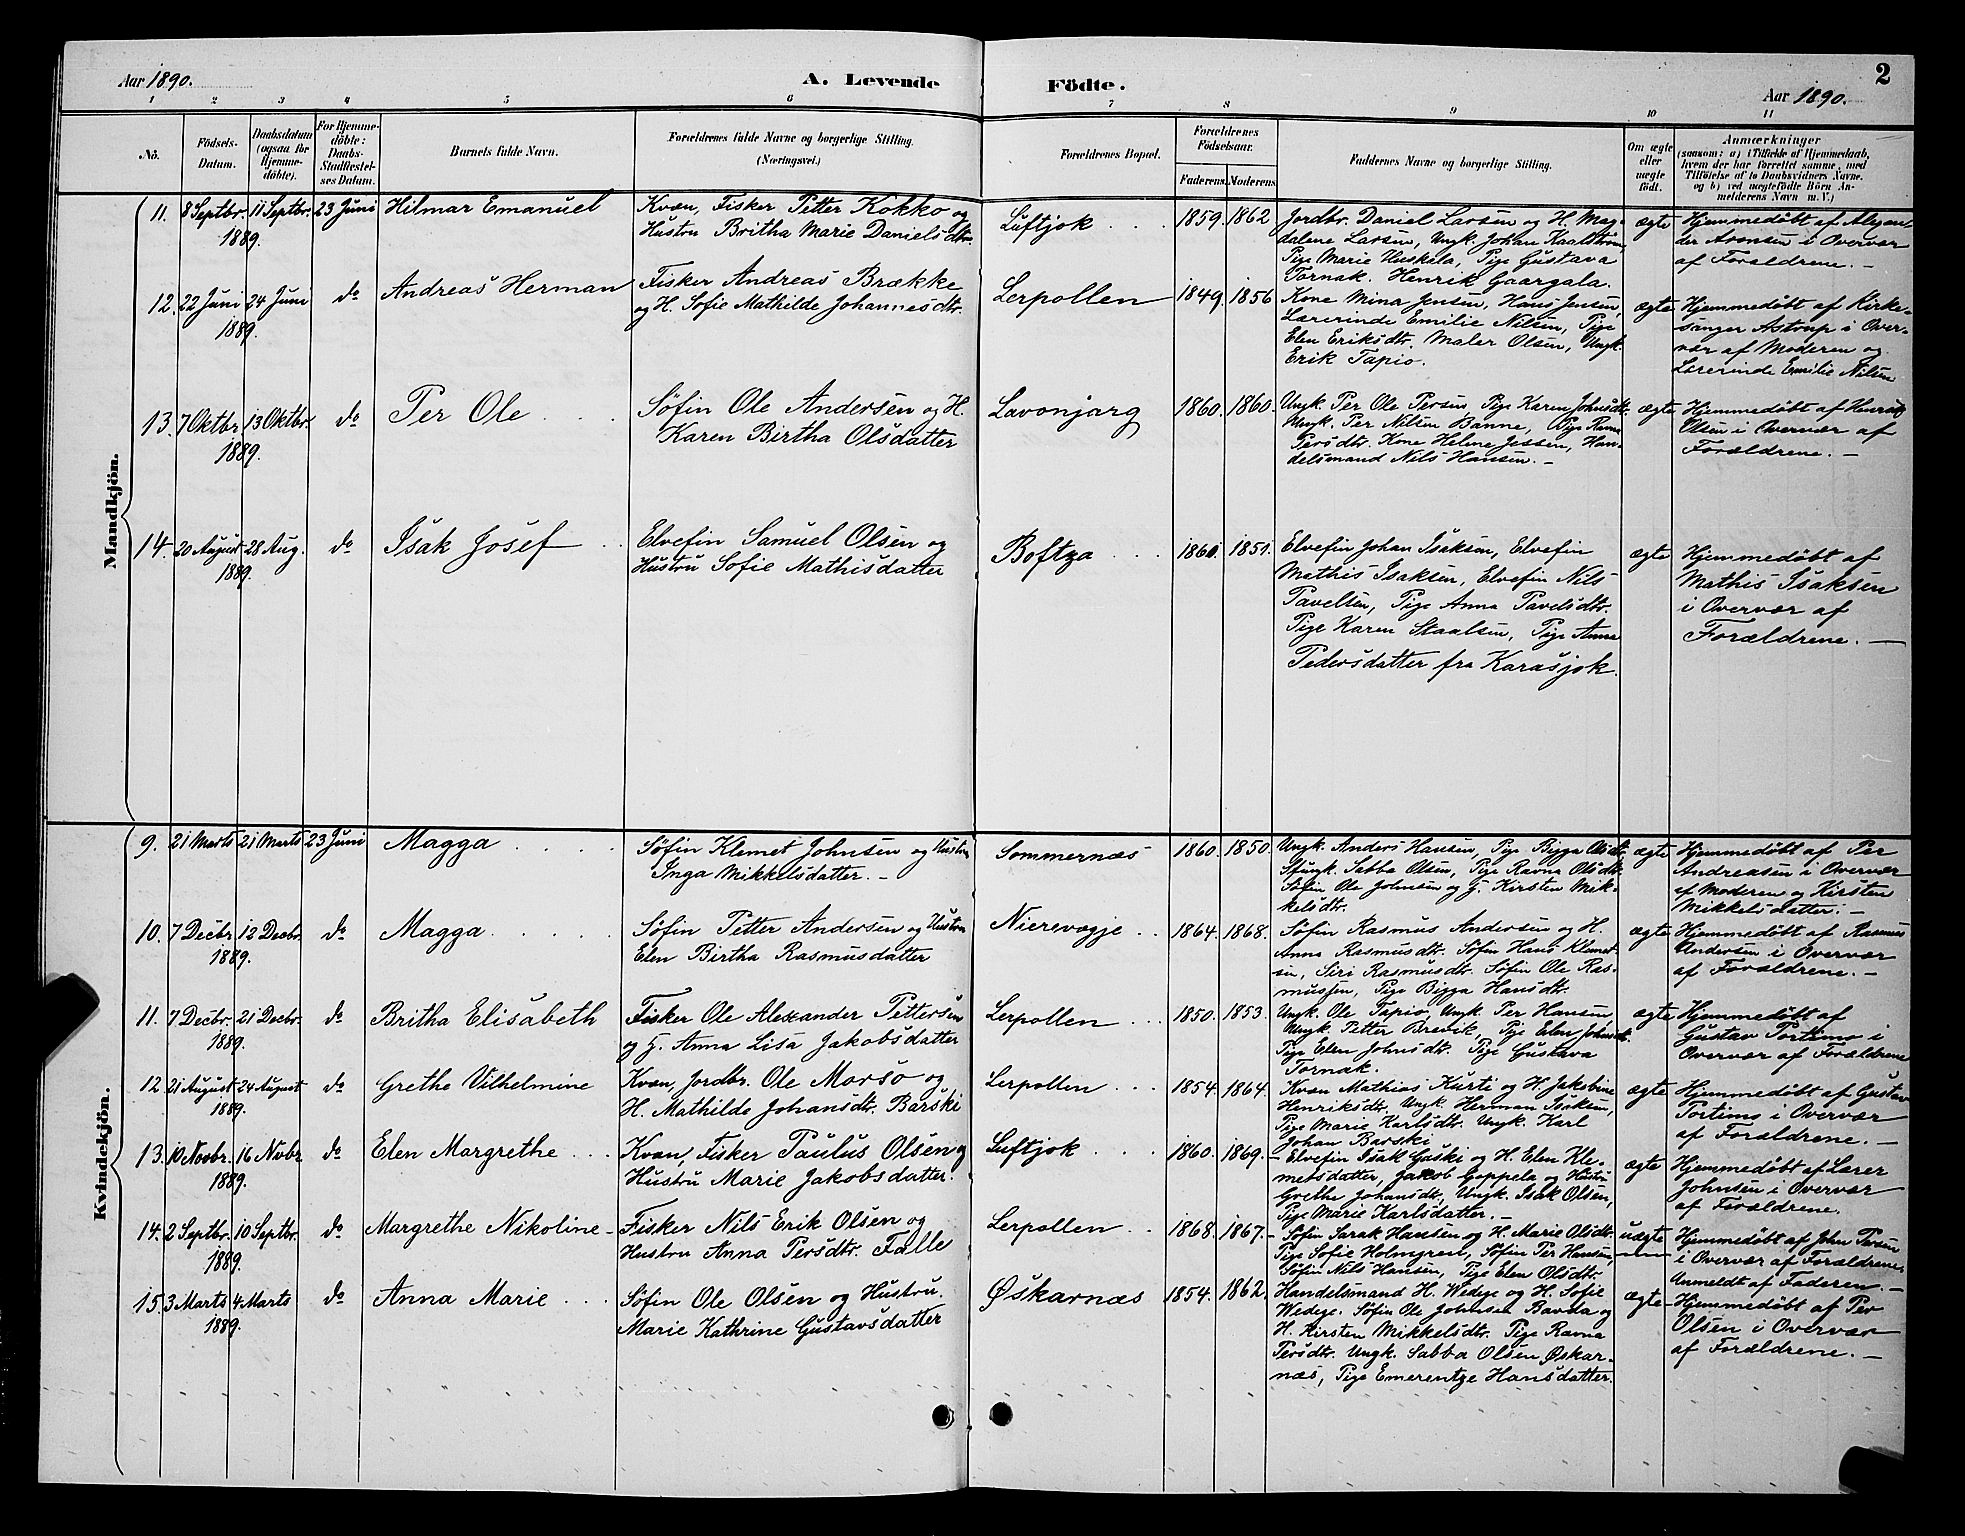 Aar 1890.
A. Levende
Födte.
2
Aar 1890.
1 2 3 4 5 6 7 8 9 10 11
No.
Födsels-
Datum.
Daabsdatum
(ogsaa for
Hjemme-
döbte).
For Hjemme-
döbte:
Daabs-
Stadfæstel-
ses Datum.
Barnets fulde Navn.
Forældrenes fulde Navne og borgerlige Stilling.
(Næringsvei.)
Forældrenes Bopæl.
Forældrenes
Födselsaar.
Faderens. Moderens.
Faddernes Navne og borgerlige Stilling.
Om ægte
eller
uægte
födt.
Anmærkninger
(saasom: a) i Tilfælde af Hjemmedaab,
hvem der har forrettet samme, med
Tilföielse af to Daabsvidners Navne,
og b) ved uægtefödte Börn An-
melderens Navn m. V.)
Mandkjön.
11. 8 Septbr. 11 Septbr. 23 Juni
1889.
Hilmar Emanuel
Kvæn, Fisker Petter Kokko og
Hustru Britha Marie Danielsdtr.
Luftjok
1859. 1862
Jordbr. Daniel Larsen og H. Mag-
dalene Larsen, Ungk. Johan Kaalström,
Pige Marie Huskela, Pige Gustava
Tornak. Henrik Gaargala.
ægte
Hjemmedøbt af Alexan-
der Aronsen i Overvær
af Forældrene. –
12. 22 Juni 24 Juni do
1889.
Andreas Herman
Fisker Andreas Brække
og H. Sofie Mathilde Johannesdtr.
Lerpollen
1849. 1856
Kone Mina Jensen, Hans Jensen,
Lærerinde Emilie Nilsen, Pige
Elen Eriksdtr. Maler Olsen, Ungk.
Erik Tapio.
ægte
Hjemmedøbt af Kirke-
sanger Astrup i Over-
vær af Moderen og
Lærerinde Emilie Nilsen
13. 7 Oktbr. 13 Oktbr. do
1889.
Per Ole
Søfin Ole Andersen og H.
Karen Birtha Olsdatter
Lavonjarg
1860. 1860.
Ungk. Per Ole Persen, Pige Karen Johnsdtr.
Ungk. Per Nilsen Banne, Pige Ravna
Persdtr. Kone Helene Jessen, Han-
delsmand Nils Hansen. –
ægte
Hjemmedøbt af Henrik
Olsen i Overvær af
Forældrene. –
14. 20 August 28 Aug. do
1889.
Isak Josef
Elvefin Samuel Olsen og
Hustru Sofie Mathisdatter
Boftza
1860. 1851.
Elvefin Johan Isaksen, Elvefin
Mathis Isaksen, Elvefin Nils
Pavelsen, Pige Anna Pavelsdtr.
Pige Karen Staalsen, Pige Anna
Pedersdatter fra Karasjok.
ægte
Hjemmedøbt af
Mathis Isaksen
i Overvær af
Forældrene. –
Kvindekjön.
9. 21 Marts 21 Marts 23 Juni
Magga
Søfin Klemet Johnsen og Hustru
Inga Mikkelsdatter. –
Sommernæs
1860. 1850.
Ungk. Anders Hansen, Pige Bigga Olsdtr.
Ungk. Sabba Olsen, Pige Ravna Olsdtr.
Søfin Ole Johnsen og H. Kirsten Mik-
kelsdtr.
ægte
Hjemmedøbt af Per
Andreasen i Overvær
af Moderen og Kirsten
Mikkelsdatter. –
10. 7 Decbr. 12 Decbr. do
1889.
Magga
Søfin Petter Andersen og Hustru
Elen Birtha Rasmusdatter
Nierevagje
1864. 1868.
Søfin Rasmus Andersen og H.
Anna Rasmusdtr. Søfin Hans Klemet-
sen, Siri Rasmusdtr. Søfin Ole Ras-
mussen, Pige Bigga Hansdtr.
ægte
Hjemmedøbt af Rasmus
Andersen i Overvær
af Forældrene. –
11. 7 Decbr. 21 Decbr. do
1889.
Britha Elisabeth
Fisker Ole Alexander Pettersen
og H. Anna Lisa Jakobsdatter
Lerpollen
1850. 1853.
Ungk. Ole Tapio, Ungk. Per Hansen
Ungk. Petter Brevik, Pige Elen Johnsdtr.
Pige Elen Johnsdtr. Pige Gustava
Tornak.
ægte
Hjemmedøbt af
Gustav Portimo i
Overvær af Forældrene
12 21 August 24 August do
1889.
Grethe Vilhelmine
Kvæn, Jordbr. Ole Morso og
H. Mathilde Johansdtr. Barski
Lerpollen
1854. 1864.
Kvæn Mathias Kurti og H. Jakobine
Henriksdtr. Ungk. Herman Isaksen,
Pige Marie Karlsdtr. Ungk. Karl
Johan Barski
ægte
Hjemmedøbt af Gustav
Portimo i Overvær
af Forældrene. –
13. 10 Novbr. 16 Novbr do
1889.
Elen Margrethe
Kvæn, Fisker Paulus Olsen og
Hustru Marie Jakobsdatter.
Luftjok
1860. 1869.
Elvefin Isak Guski og H. Elen Kle-
metsdatter, Jakob Goppela og Hustru
Grethe Johansdtr., Ungk. Isak Olsen,
Pige Marie Karlsdatter. –
ægte
Hjemmedøbt af Lærer
Johnsen i Overvær
af Forældrene.
14. 2 Septbr. 10 Septbr. do
1889.
Margrethe Nikoline
Fisker Nils Erik Olsen og
Hustru Anna Persdtr. Falle
Lerpollen
1868. 1867.
Søfin Sarak Hansen og H. Marie Olsdtr.
Pige Sofie Holmgren, Søfin Per Hansen,
Søfin Nils Hansen, Pige Elen Olsdtr.
uægte
Hjemmedøbt af John Persen
i Overvær af Forældrene.
Anmeldt af Faderen. –
15. 3 Marts 4 Marts do
1889.
Anna Marie
Søfin Ole Olsen og Hustru.
Marie Kathrine Gustavsdatter
Øskarnæs
1854. 1862.
Handelsmand H. Wedege og H. Sofie
Wedege. Søfin Ole Johnsen Bavla og
H. Kirsten Mikkelsdtr. Pige Ravna
Persdtr. Ungk. Sabba Olsen Øskar-
næs, Pige Emerentze Hansdatter.
ægte
Hjemmedøbt af Per
Olsen i Overvær
af Forældrene. –